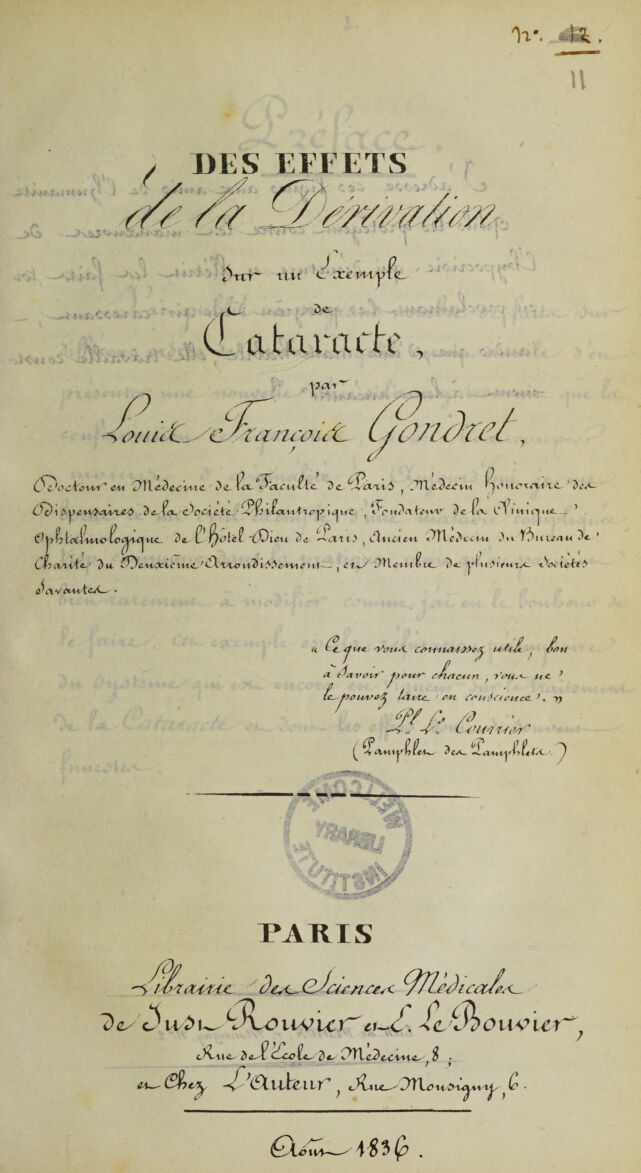 N°. 12.
11
DES EFFETS
de la Dérivation
sur un Exemple
de
Cataracte,
par
Louis François Gondret,
Docteur en Médecine de la Faculté de Paris, Médecin honoraire des
Dispensaires de la Société Philantropique, Fondateur de la Clinique
Ophtalmologique de l'Hôtel Dieu de Paris, Ancien Médecin du Bureau de
Charité du Deuxième Arrondissement, et Membre de plusieurs Sociétés
Savantes.
« Ce que vous connaissez utile, bon
à Savoir pour chacun, vous ne
le pouvez taire en conscience. »
Pl. Ls. Courrier
(Pamphlet des Pamphlets.)
WELLCOME
LIBRARY
INSTITUTE
PARIS
Librairie des Sciences Médicales
de Just Rouvier et E. Le Bouvier,
Rue de l'École de Médecine, 8;
et Chez L'Auteur, Rue Monsigny, 6.
Août 1836.